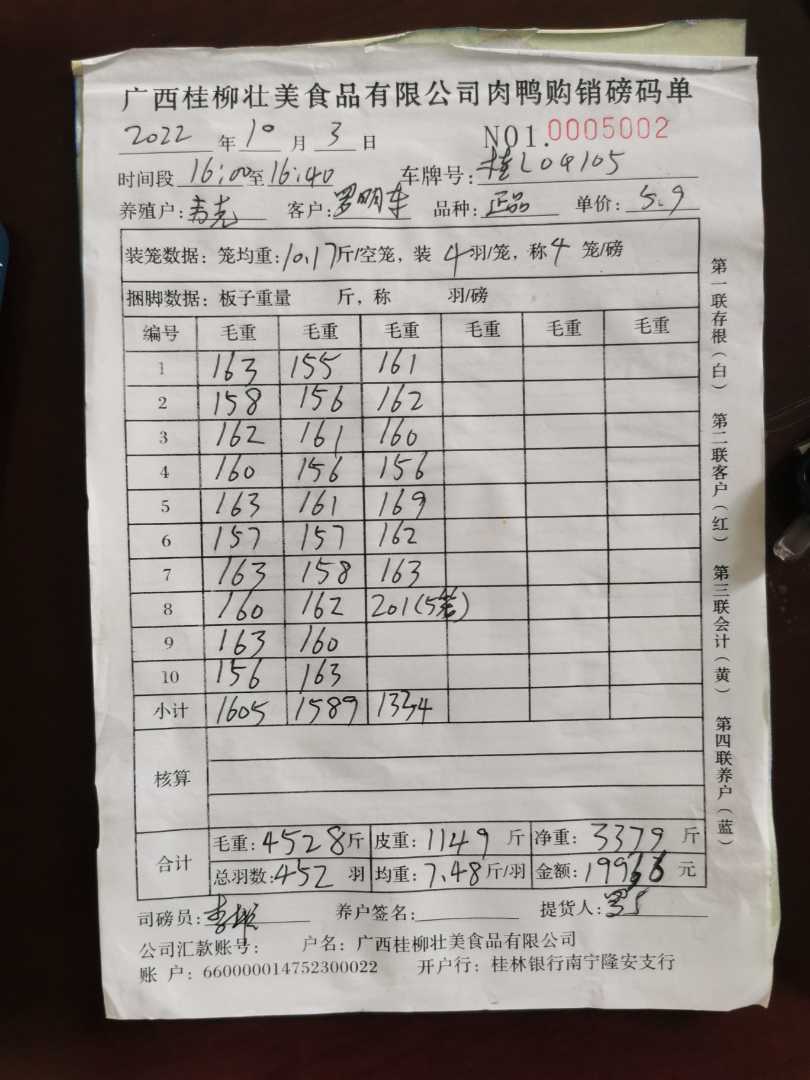 广西桂柳壮美食品有限公司肉鸭购销磅码单
2022 年 10 月 3 日 NO1.0005002
时间段 16:00 至 16:40 车牌号: 桂L04105
养殖户: 客户: 罗明车 品种: 正品 单价: 5.9
装笼数据: 笼均重: 10.17 斤/空笼, 装 4 羽/笼, 称 4 笼/磅
捆脚数据: 板子重量 斤, 称 羽/磅
编号 毛重 毛重 毛重 毛重 毛重 毛重
1 163 155 161
2 158 156 162
3 162 161 160
4 160 156 156
5 163 161 169
6 157 157 162
7 163 158 163
8 160 162 201(5笼)
9 163 160
10 156 163
小计 1605 1589 1334
核算
合计 毛重: 4528 斤 皮重: 1149 斤 净重: 3379 斤
总羽数: 452 羽 均重: 7.48 斤/羽 金额: 19936 元
司磅员: 养户签名: 提货人:
公司汇款账号: 户名: 广西桂柳壮美食品有限公司
账 户: 660000014752300022 开户行: 桂林银行南宁隆安支行
第一联存根(白) 第二联客户(红) 第三联会计(黄) 第四联养户(蓝)